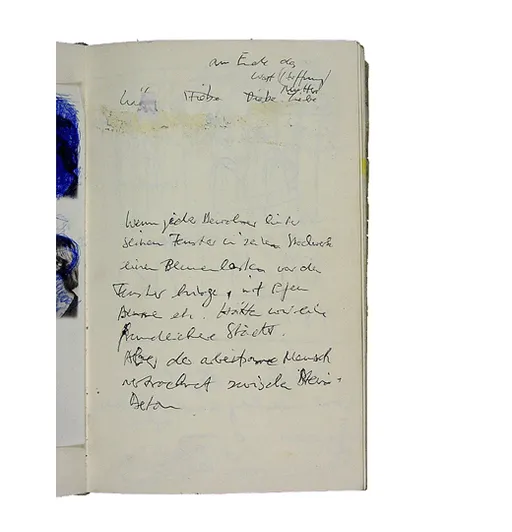 am Ende das
Wort (Hoffnung)
Mutter
Liebe Liebe Liebe
Wenn jeder Bewohner hinter
seinem Fenster in seinem Stockwerk
einen Blumenkasten vor das
Fenster hängt, mit
Blumen etc. Hätten wir eine
freundlichere Stadt.
Aber der arbeitsame Mensch
vertrocknet zwischen Stein +
Beton